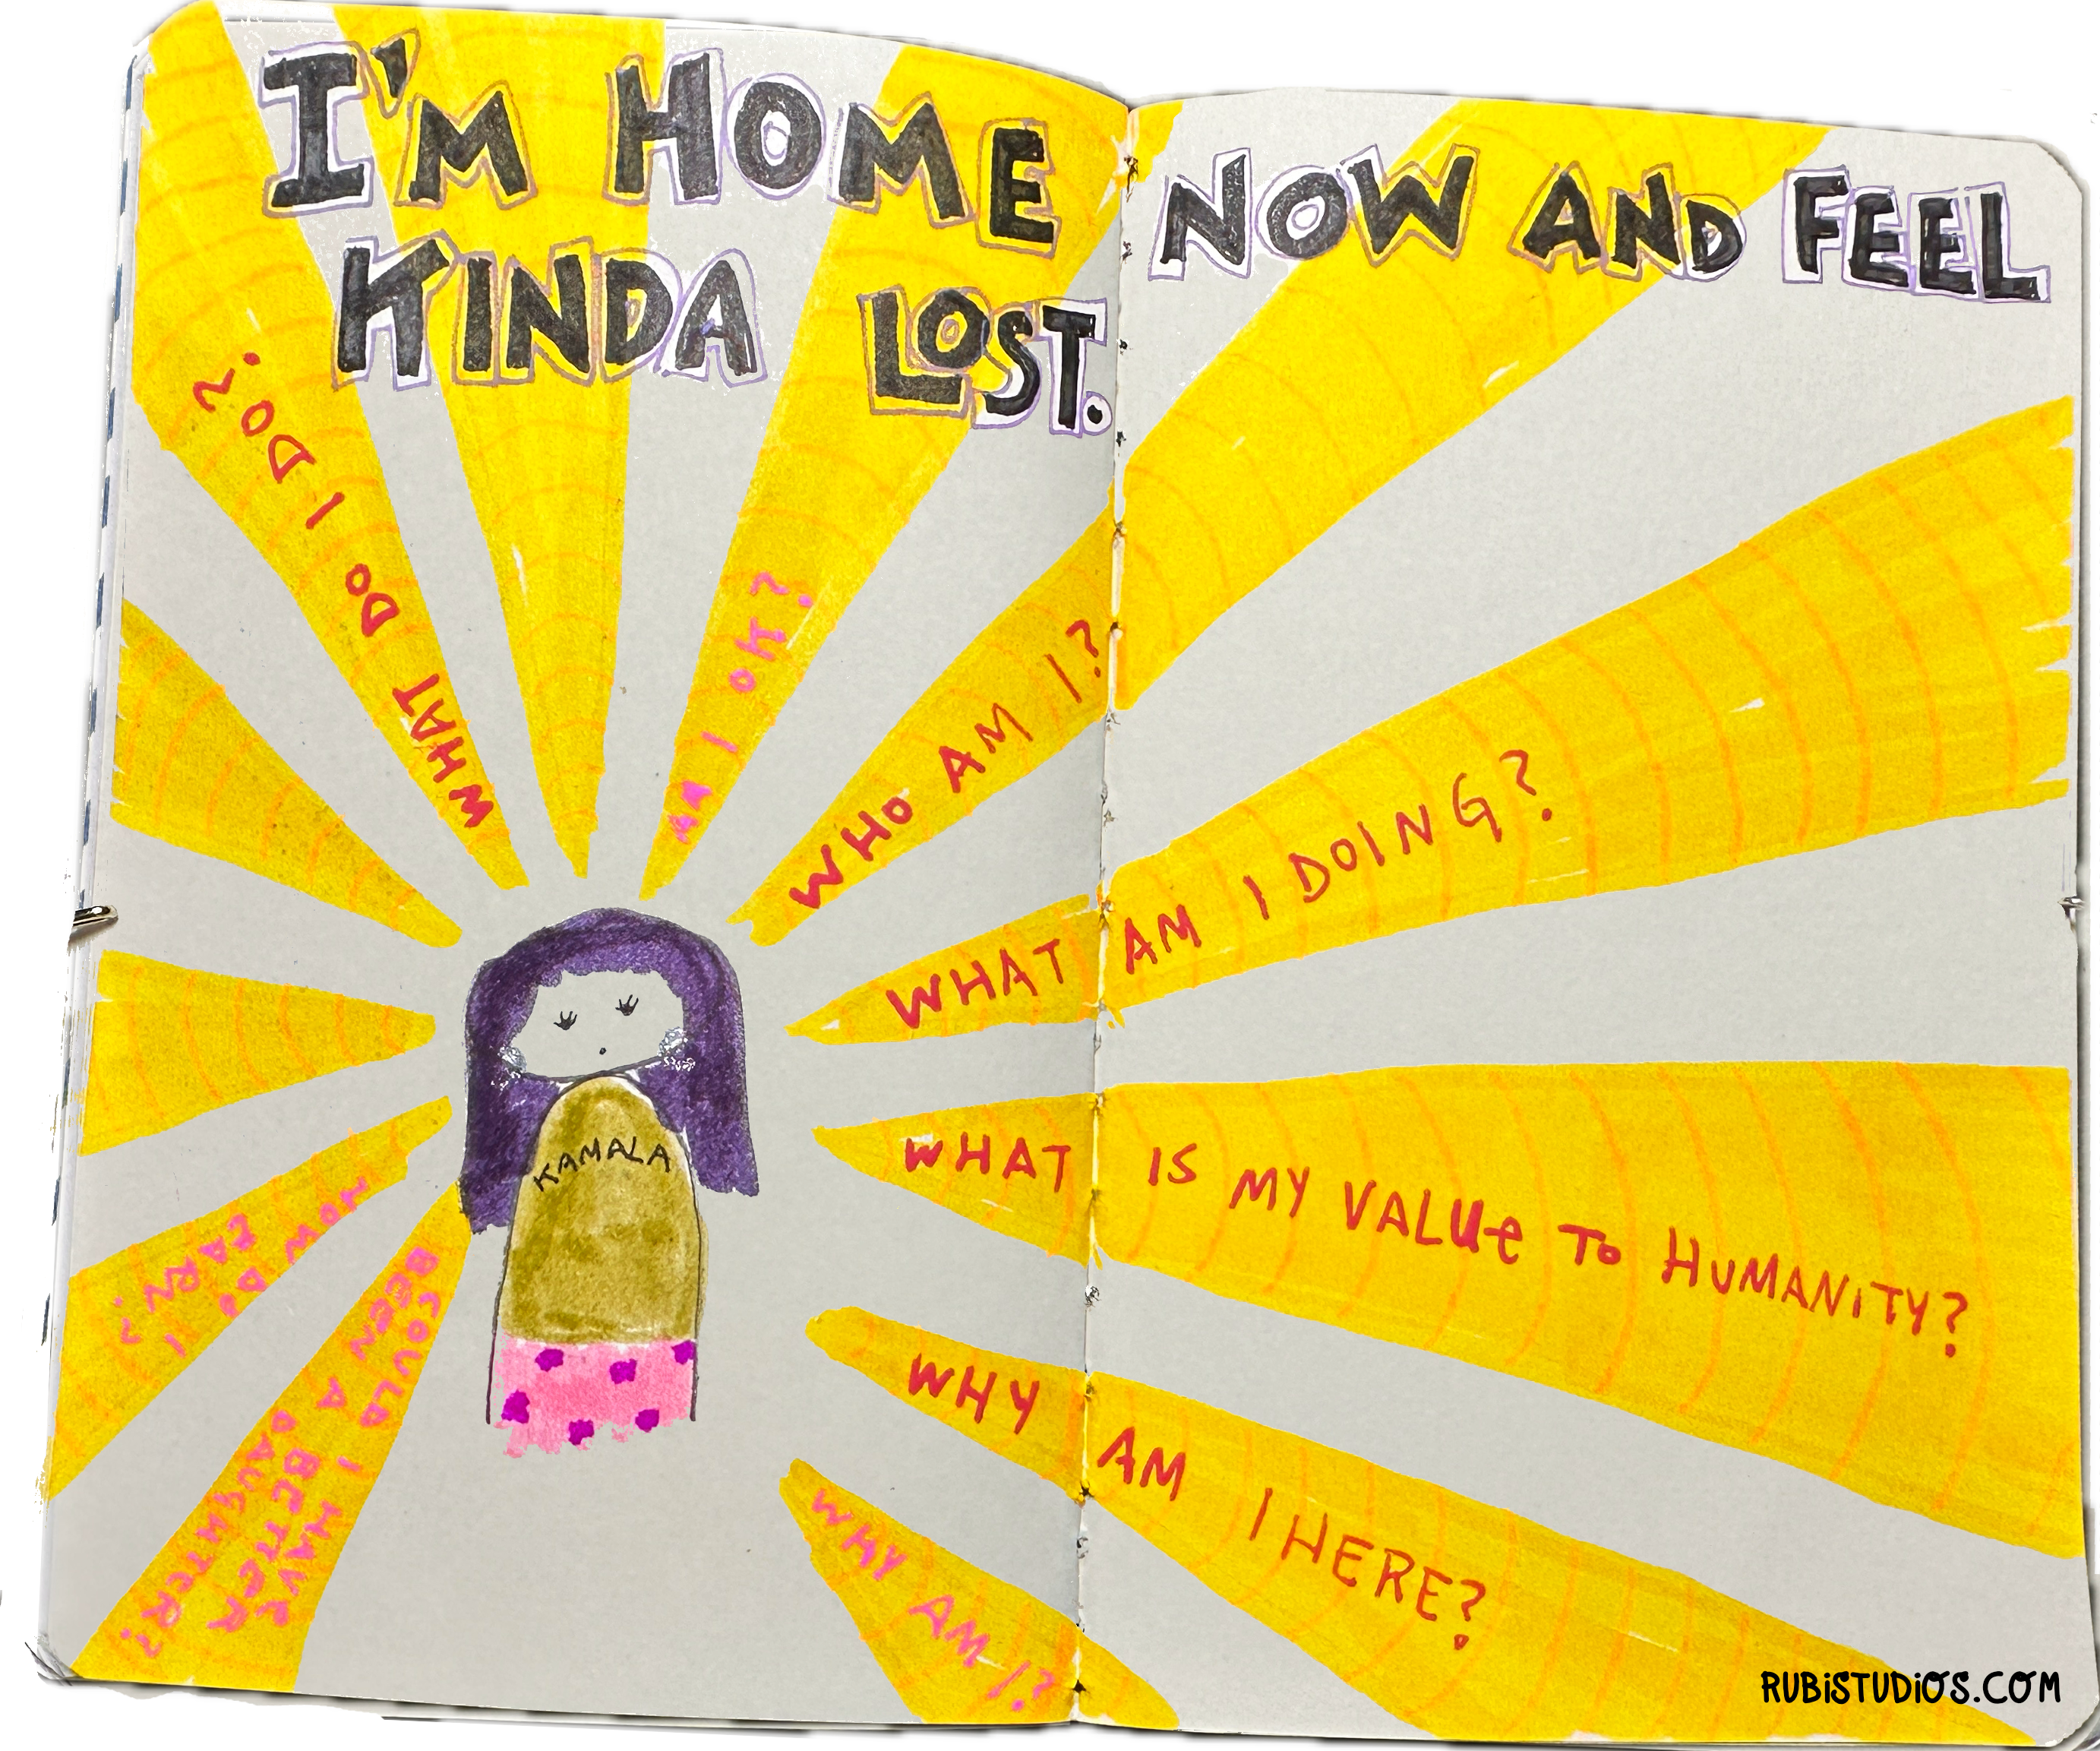 I'M HOME NOW AND FEEL
KINDA LOST.
WHAT DO I DO?
AM I OK?
WHO AM I?
WHAT AM I DOING?
WHAT IS MY VALUE TO HUMANITY?
WHY AM I HERE?
WHY AM I?
COULD I HAVE
BEEN A BETTER
DAUGHTER?
HOW DO I
EARN?
KAMALA
RUBISTUDIOS.COM